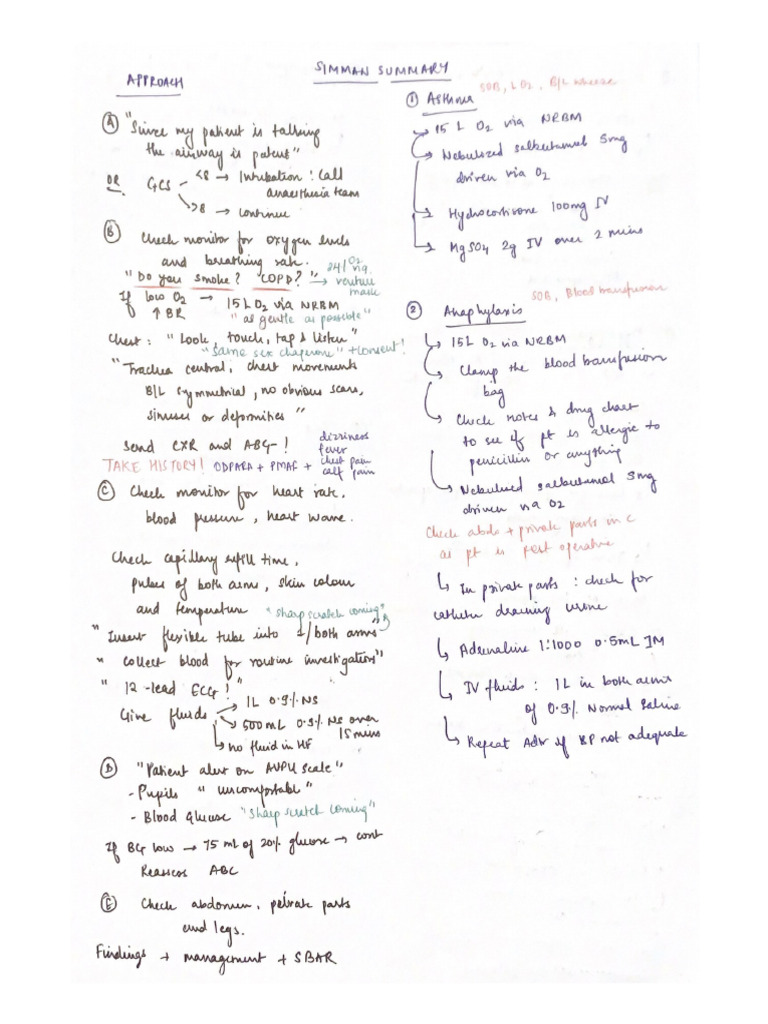 SIMMAN SUMMARY
APPROACH
Ⓐ "Since my patient is talking
the airway is patent"
OR GCS <8 → Intubation : Call
anaesthesia team
>8 → continue
Ⓑ Check monitor for oxygen levels
and breathing rate.
"Do you smoke? COPD?" → 24% O2 via
venturi
mask
If low O2 → 15 L O2 via NRBM
↑ BR "as gentle as possible"
Chest : "Look, touch, tap & listen"
"Same sex chaperone" + consent!
"Trachea central, chest movements
B/L symmetrical, no obvious scars,
sinuses or deformities"
Send CXR and ABG-!
TAKE HISTORY! ODPARA + PMAF + dizziness
fever
chest pain
calf pain
Ⓒ Check monitor for heart rate,
blood pressure, heart wave.
Check capillary refill time,
pulses of both arms, skin colour
and temperature "sharp scratch coming"
"Insert flexible tube into 1/both arms"
"collect blood for routine investigation"
"12-lead ECG!"
Give fluids → 1L 0.9% NS
→ 500mL 0.9% NS over
15 mins
→ no fluid in HF
Ⓓ "Patient alert on AVPU scale"
- Pupils "uncomfortable"
- Blood Glucose "sharp scratch coming"
If BG low → 75 mL of 20% glucose → cont
Reassess ABC
Ⓔ Check abdomen, private parts
and legs.
Findings + management + SBAR
SOB, ↓O2, B/L wheeze
① Asthma
→ 15 L O2 via NRBM
→ Nebulized salbutamol 5mg
driven via O2
→ Hydrocortisone 100mg IV
→ MgSO4 2g IV over 2 mins
SOB, Blood transfusion
② Anaphylaxis
↳ 15L O2 via NRBM
↳ Clamp the blood transfusion
bag
↳ Check notes & drug chart
to see if pt is allergic to
penicillin or anything
↳ Nebulized salbutamol 5mg
driven via O2
Check abdo + private parts in C
as pt is post operative
↳ In private parts : check for
catheter draining urine
↳ Adrenaline 1:1000 0.5mL IM
↳ IV fluids : 1L in both arms
of 0.9% Normal Saline
↳ Repeat Adr if BP not adequate